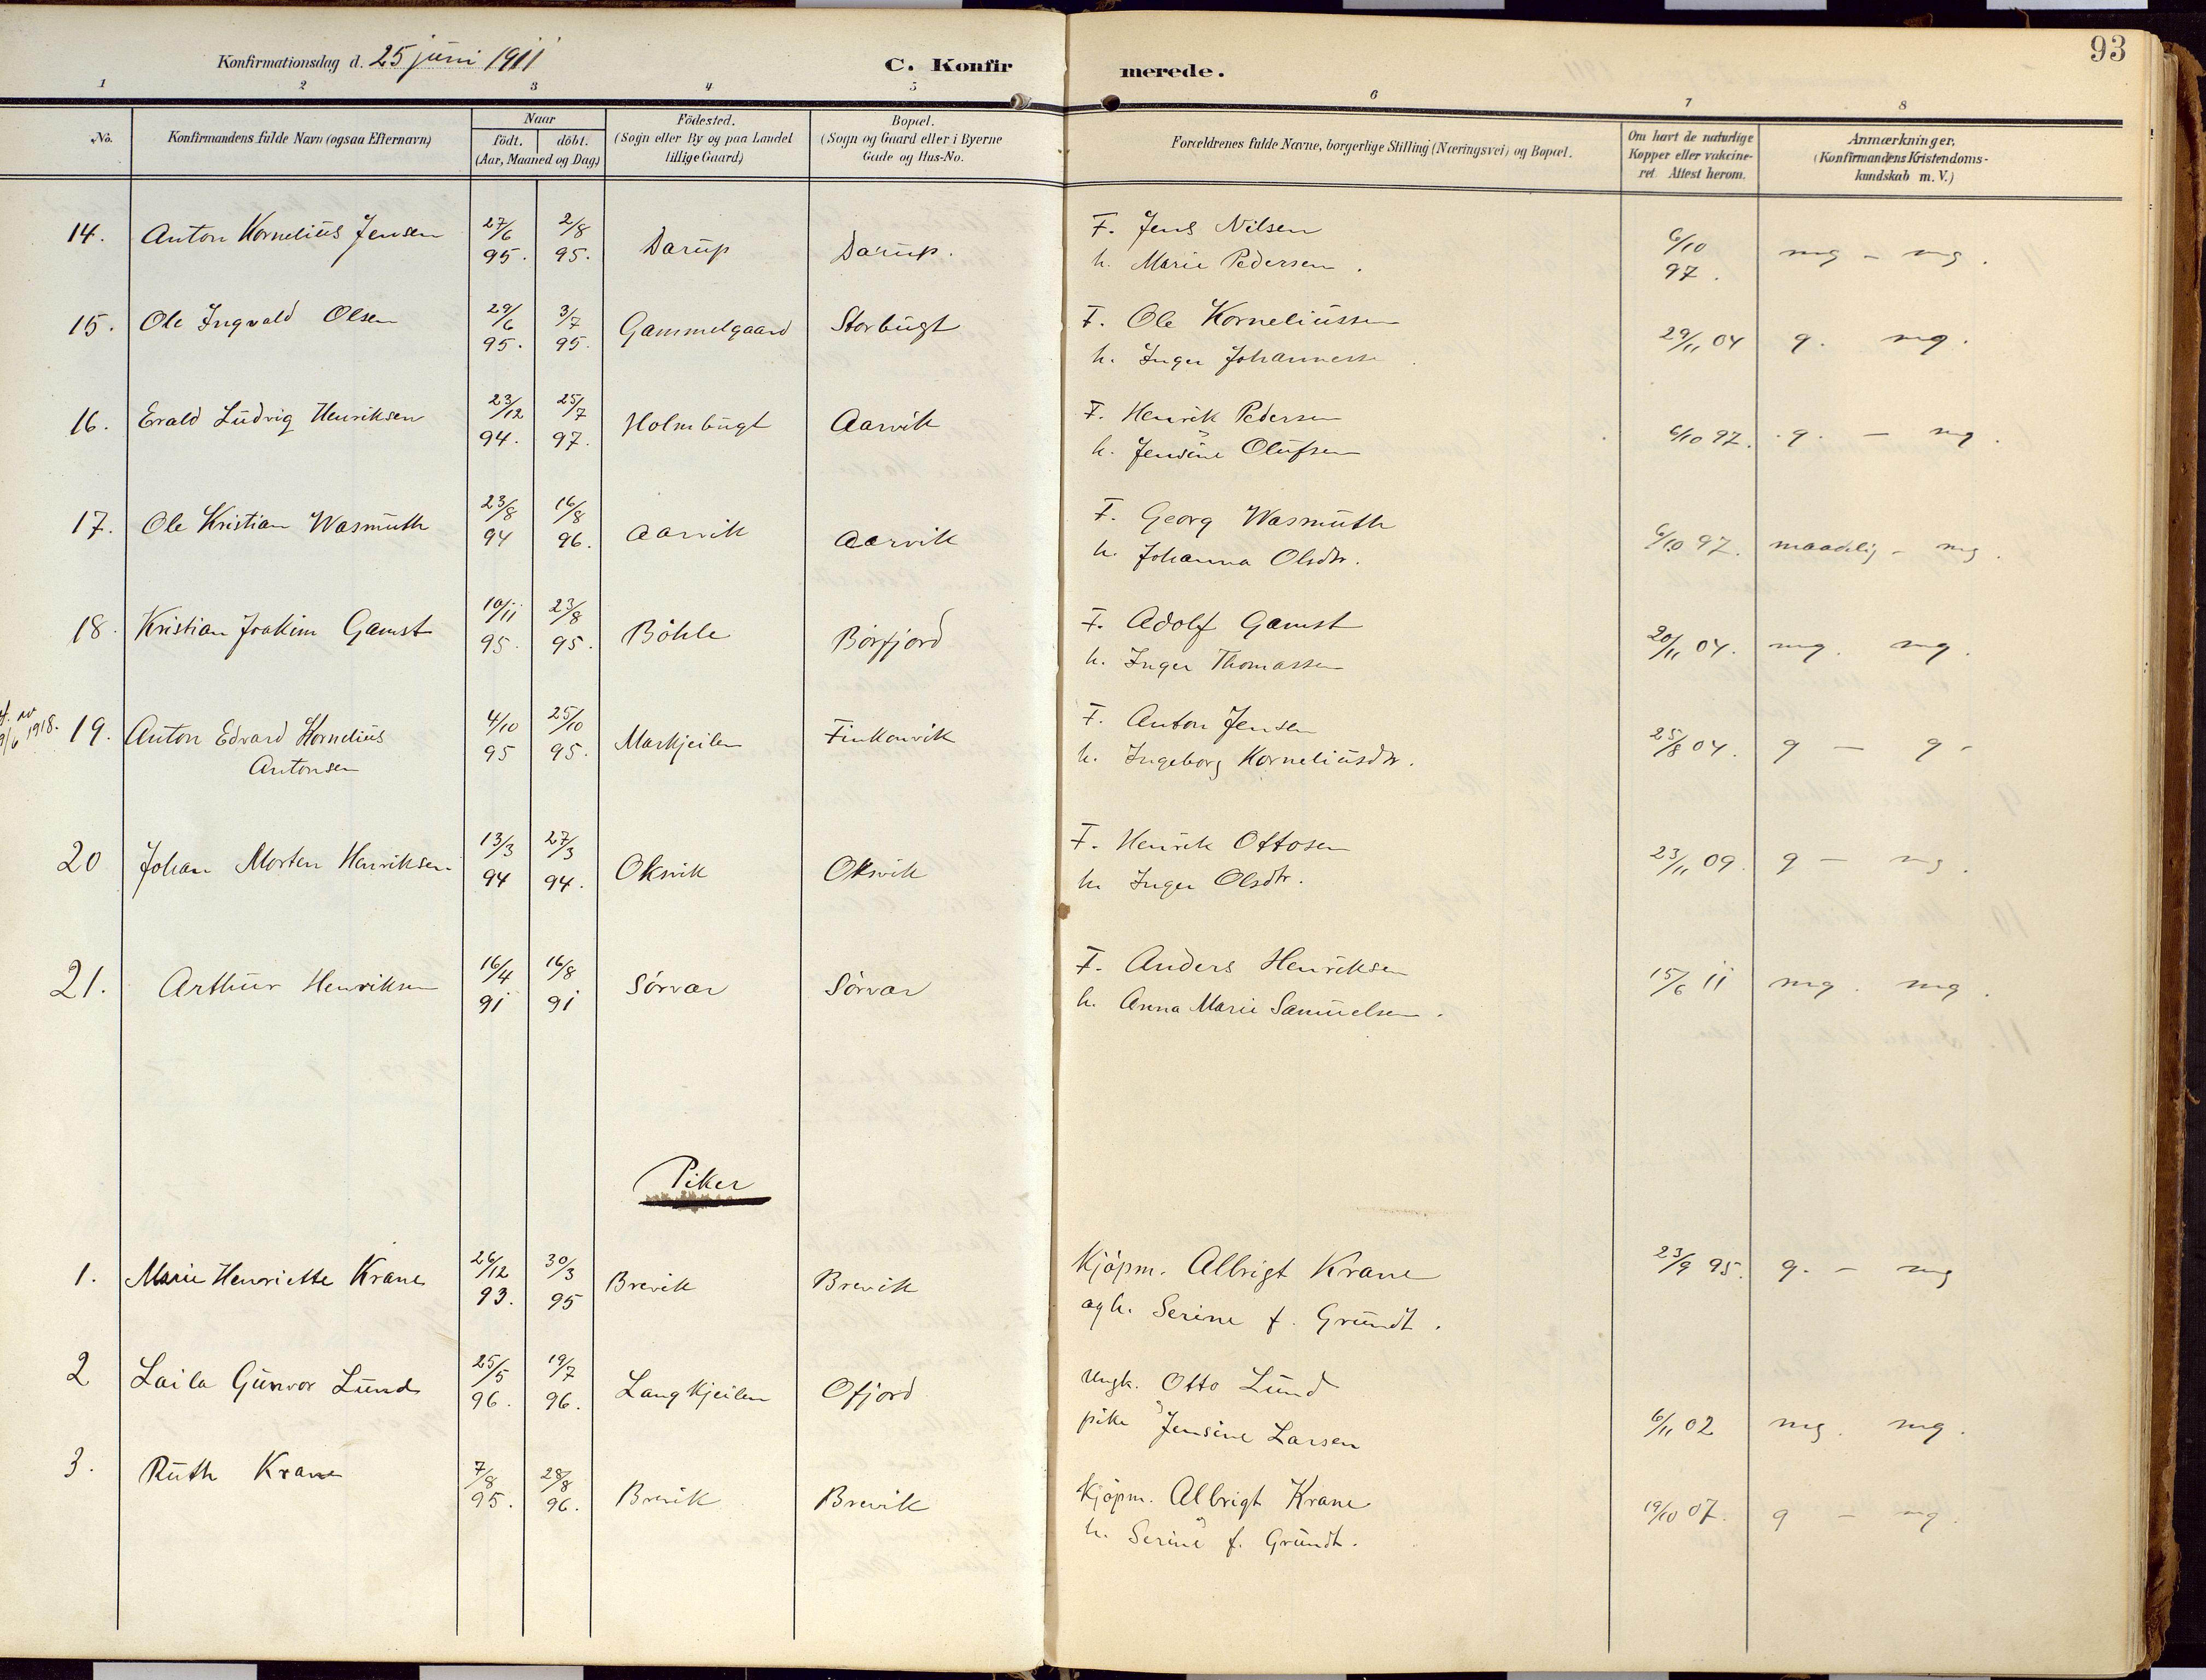 93
Konfirmationsdag d. 25 juni 1911
C. Konfirmerede.
1 2 3 4 5 6 7 8
No.
Konfirmandens fulde Navn (ogsaa Efternavn)
Naar
födt. döbt.
(Aar, Maaned og Dag)
Födested.
(Sogn eller By og paa Landet
tillige Gaard)
Bopæl.
(Sogn og Gaard eller i Byerne
Gade og Hus-No.
Forældrenes fulde Navne, borgerlige Stilling (Næringsvei) og Bopæl.
Om havt de naturlige
Kopper eller vakcine-
ret. Attest herom.
Anmærkninger.
(Konfirmandens Kristendoms-
kundskab m. V.)
14. Anton Kornelius Jensen 27/6 95. 2/8 95. Darup Darup. F. Jens Nilsen 6/10 97. mg - mg.
h. Marie Pedersen.
15. Ole Ingvald Olsen 29/6 95. 3/7 95. Gammelgaard Storbugt F. Ole Korneliussen 29/11 04 g. mg.
h. Inger Johannessen
16. Erald Ludvig Henriksen 23/12 94. 25/7 97. Holmbugt Aarvik F. Henrik Pedersen 6/10 97. g. - mg.
h. Jensine Olufsen
17. Ole Kristian Wasmuth 23/8 94 16/8 96. Aarvik Aarvik F. Georg Wasmuth 6/10 97. maadelig - mg.
h. Johanna Olsdtr.
18. Kristian Joakim Gamst 10/11 95. 23/8 95. Böhle Börfjord F. Adolf Gamst 20/11 04. mg. mg.
h. Inger Thomassen
1918. 19. Anton Edvard Kornelius 4/10 95 25/10 95. Markjeilen Finkonvik F. Anton Jensen 25/8 04. g - g -
Antonsen h. Ingeborg Korneliusdtr.
20 Johan Morten Henriksen 13/3 94 27/3 94. Oksvik Oksvik F. Henrik Ottosen 23/11 09. g - mg.
h. Inger Olsdtr.
21. Arthur Henriksen 16/4 91 16/8 91 Sörvær Sörvær F. Anders Henriksen 15/6 11 mg. mg.
h. Anna Marie Samuelsen.
Piker
1. Marie Henriette Krane 26/12 93. 30/3 95 Brevik Brevik Kjöpm. Albrigt Krane 23/9 95. g. - mg
og h. Serine f. Grundt.
2 Laila Gunvor Lund 25/5 96. 19/7 96. Langkjeilen Ofjord Ungk. Otto Lund 6/11 02 mg. mg.
pike Jensine Larsen
3. Ruth Krane 7/8 95. 28/8 96. Brevik Brevik Kjöpm. Albrigt Krane 19/10 07. g - mg.
h. Serine f. Grundt.